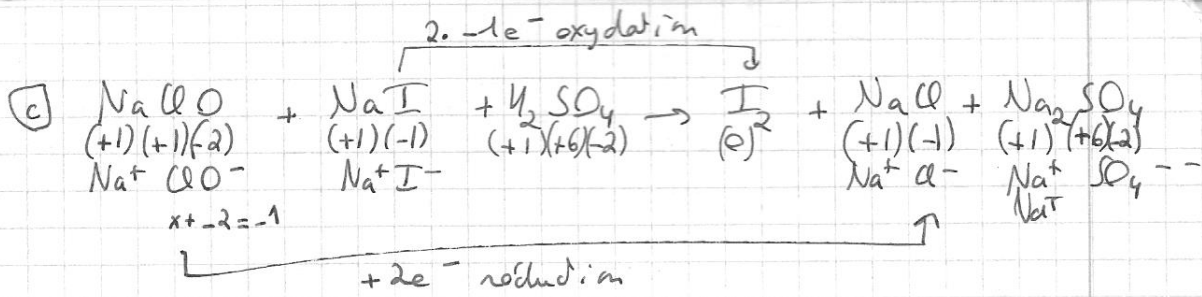 2. -1e⁻ oxydation
c) NaClO + NaI + H₂SO₄ → I₂ + NaCl + Na₂SO₄
(+1)(+1)(-2) (+1)(-1) (+1)(+6)(-2) (0)₂ (+1)(-1) (+1)(+6)(-2)
Na⁺ ClO⁻ Na⁺ I⁻ Na⁺ Cl⁻ Na⁺ SO₄⁻⁻
Na⁺
x+-2=-1
+2e⁻ réduction